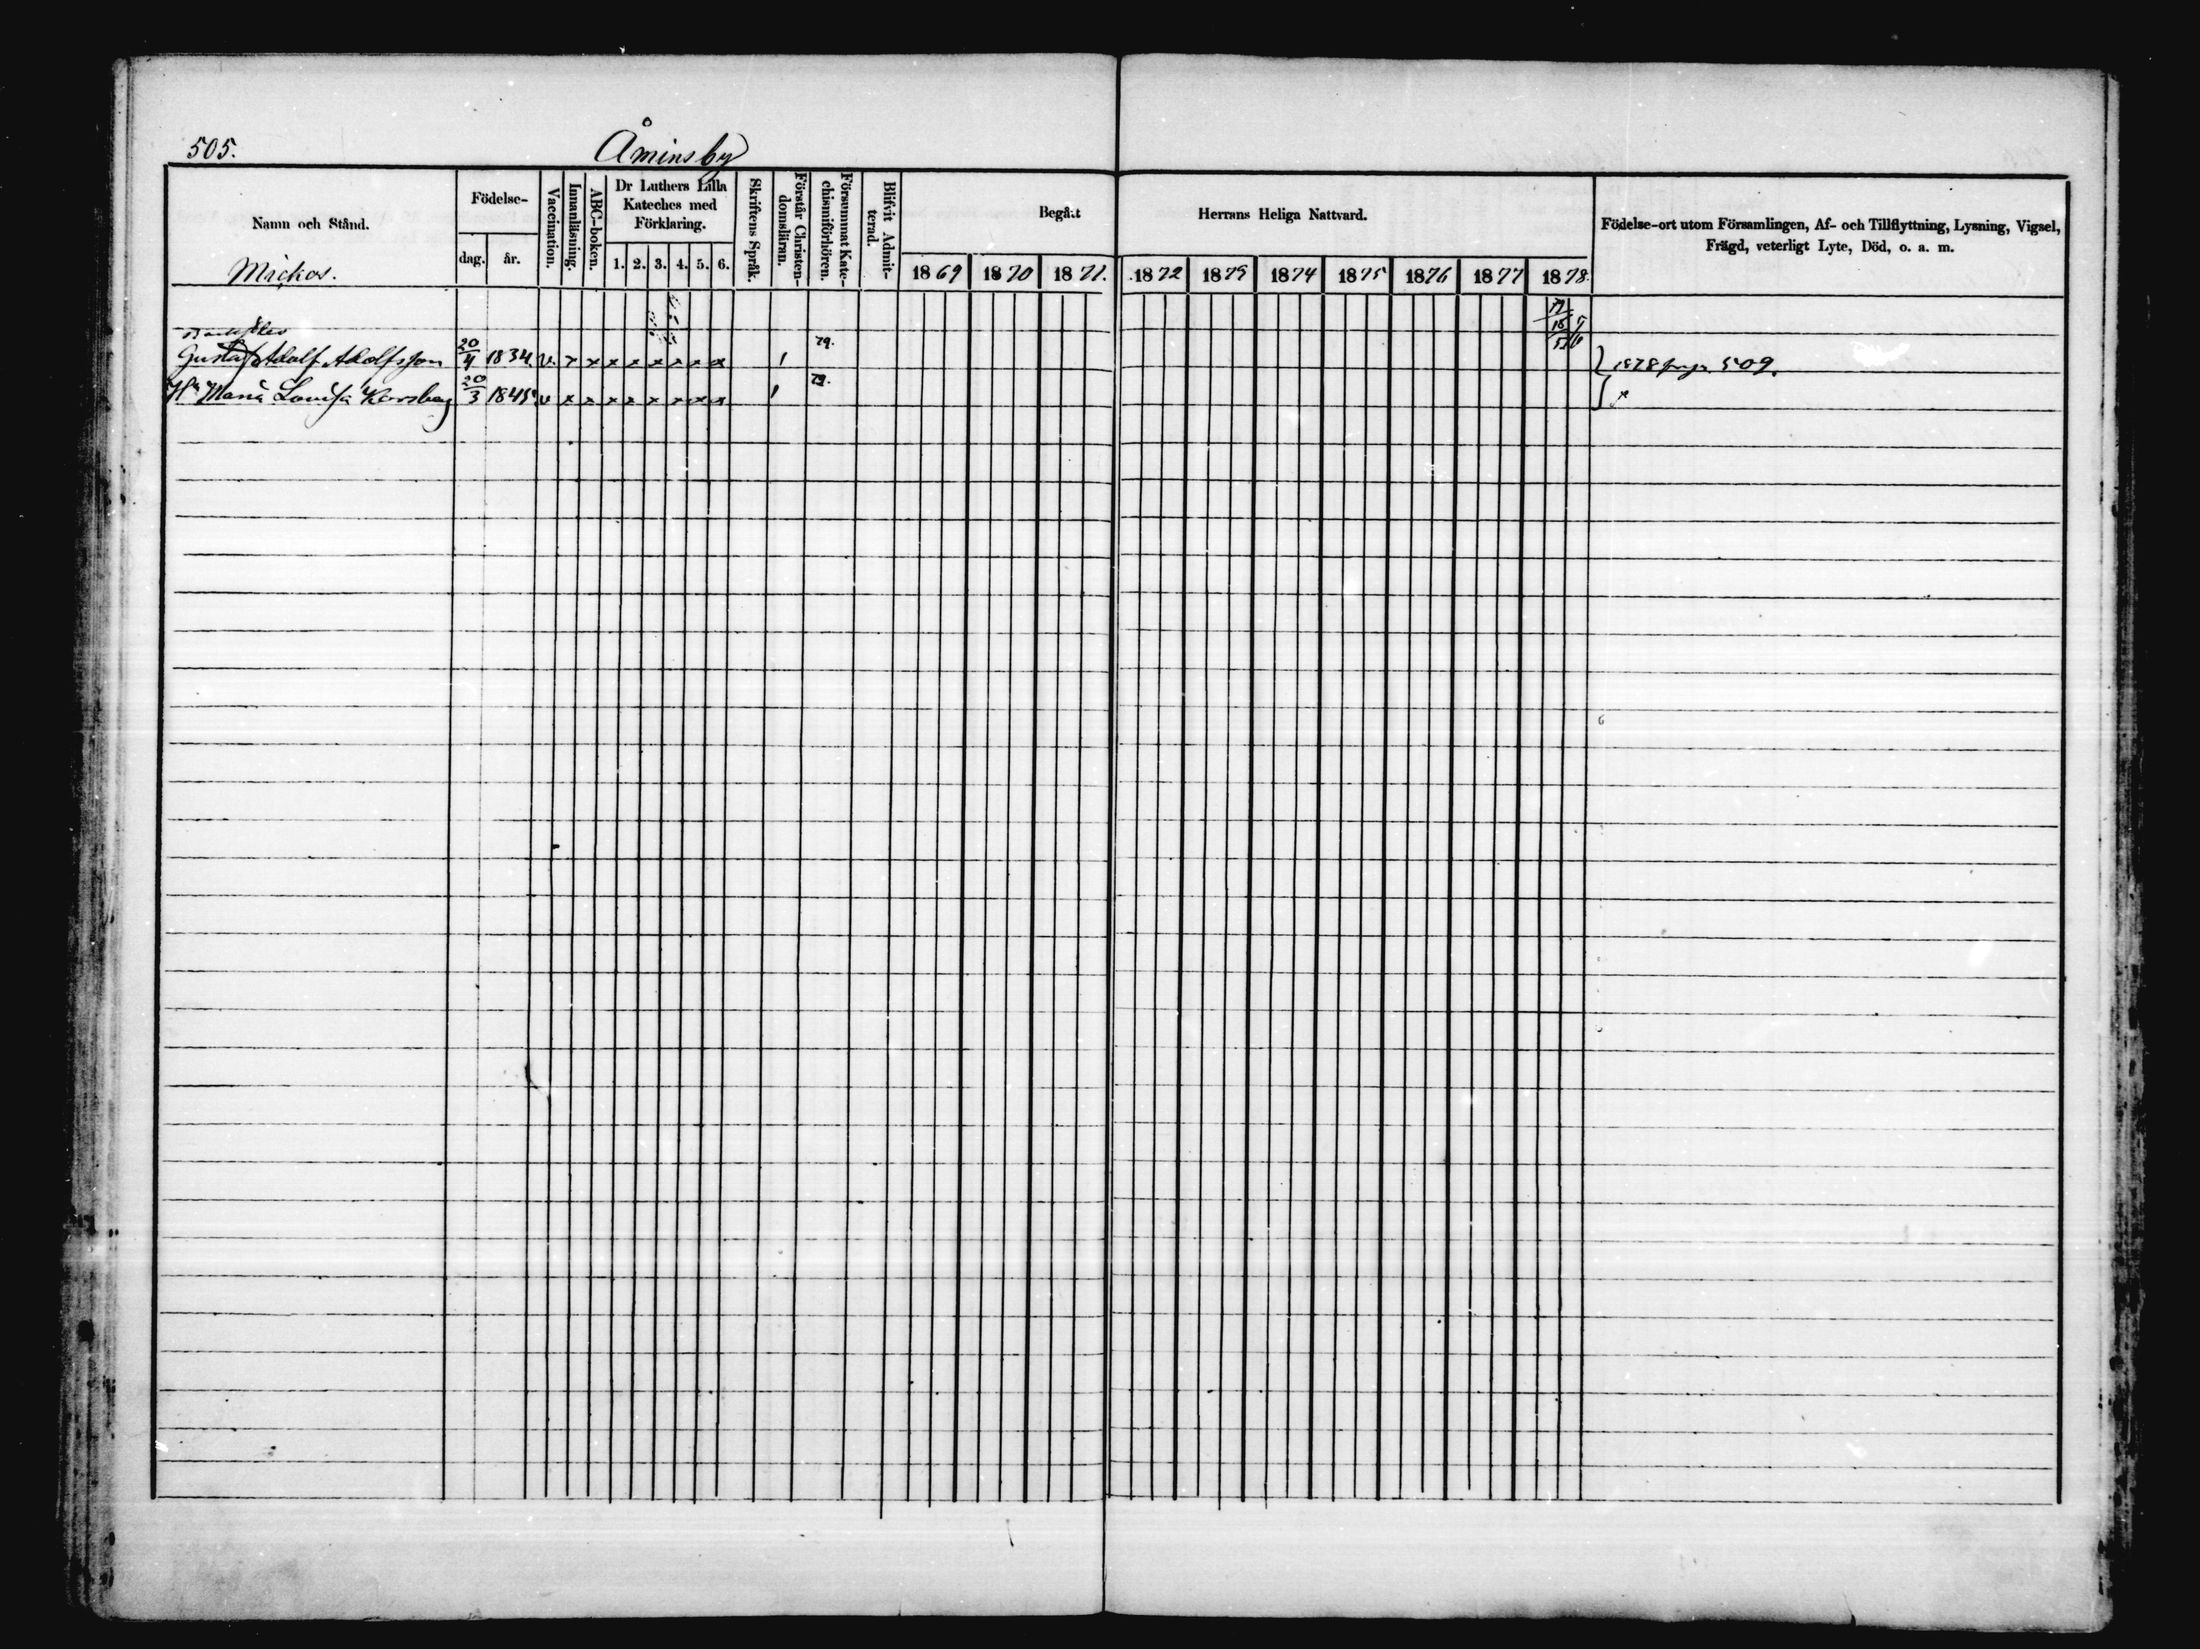 505.
Åminsby
Namn och Stånd.
Mickos.
Födelse-
dag.
år.
Vaccination.
Innanläsning.
ABC-boken.
Dr Luthers Lilla
Kateches med
Förklaring.
1. 2. 3. 4. 5. 6.
Skriftens Språk.
Förstår Christen-
domsläran.
Försummat Kate-
chismiförhören.
Blifvit Admit-
terad.
Begått Herrans Heliga Nattvard.
1869 1870 1871. 1872 1873 1874 1875 1876 1877 1878.
Födelse-ort utom Församlingen, Af- och Tillflyttning, Lysning, Vigsel,
Frägd, veterligt Lyte, Död, o. a. m.
Gustaf Adolf Adolfsson 20/4 1834. v. x x x x x x x x 79. 1878 509.
Hu Maria Lovisa 20/3 1845. v x x x x x x x x 79.